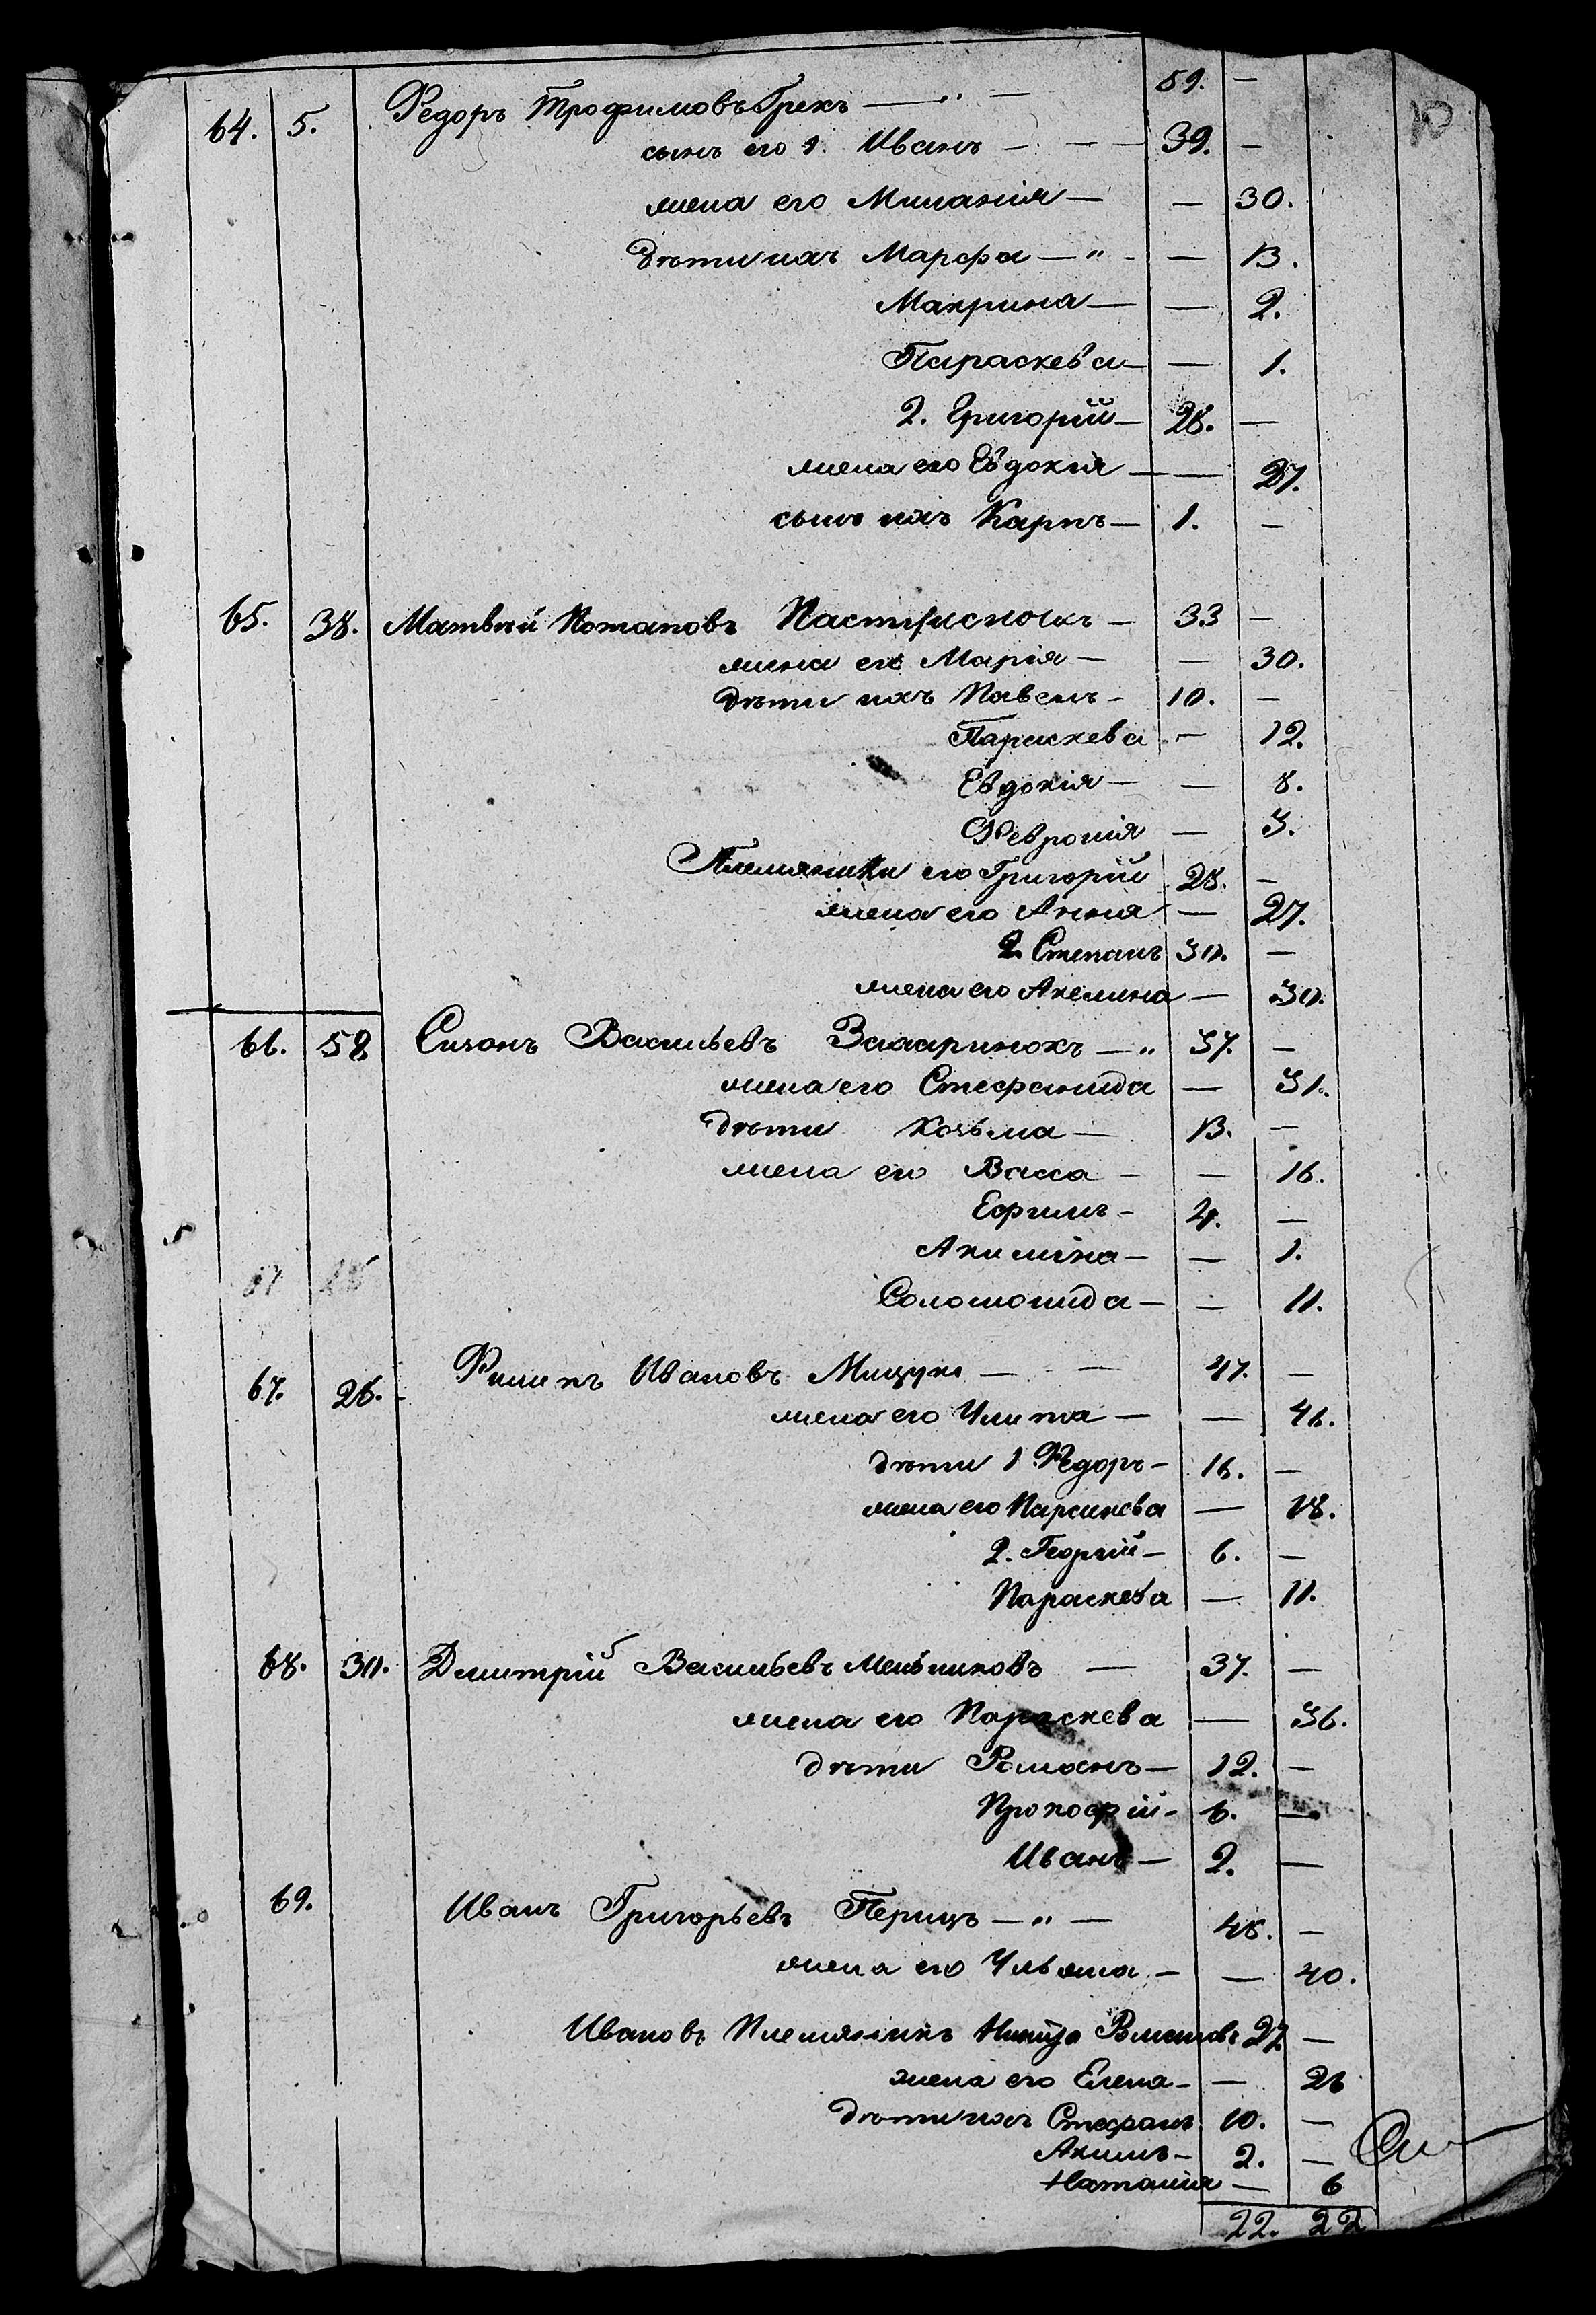 10
64. 5. Ѳедоръ Трофимовъ Грекъ — " — 59. —
сынъ его 1. Иванъ — — 39. —
жена его Миланія — — 30.
дѣти ихъ Марфа — " — — 13.
Макрина — — 2.
Параскева — — 1.
2. Григорій — 28. —
жена его Евдокія — — 27.
сынъ ихъ Карпъ — 1. —
65. 38. Матвѣй Потаповъ — 33 —
жена его Марія — — 30.
дѣти ихъ Павелъ — 10. —
Параскева — 12.
Евдокія — — 8.
Февронія — 3.
Племяники его Григорій 28. —
жена его Анна — 27.
2. Степанъ 30. —
жена его Акелина — 30.
66. 58 Васильевъ — " 37. —
жена его Стефанида — 31.
дѣти Козьма — 13. —
жена его Васса — — 16.
Ефимъ — 4. —
Акилина — — 1.
Соломонида — — 11.
67. 26. Филипъ Ивановъ Мицул — — 47. —
жена его Улита — — 46.
дѣти 1 Ѳедоръ — 16. —
жена его Параскева — 18.
2. Георгій — 6. —
Параскева — 11.
68. 30. Дмитрій Васильевъ Мельниковъ — 37. —
жена его Параскева — 36.
дѣти Романъ — 12. —
Прокофій — 6. —
Иванъ — 2. —
69. Иванъ Григорьевъ Перицъ — " — 48. —
жена его Ульяна — — 40.
Ивановъ Племяникъ Никита 27 —
жена его Елена — — 26
дѣти ихъ Стефанъ 10. —
Акимъ — 2. —
Наталия — 6
22. 22